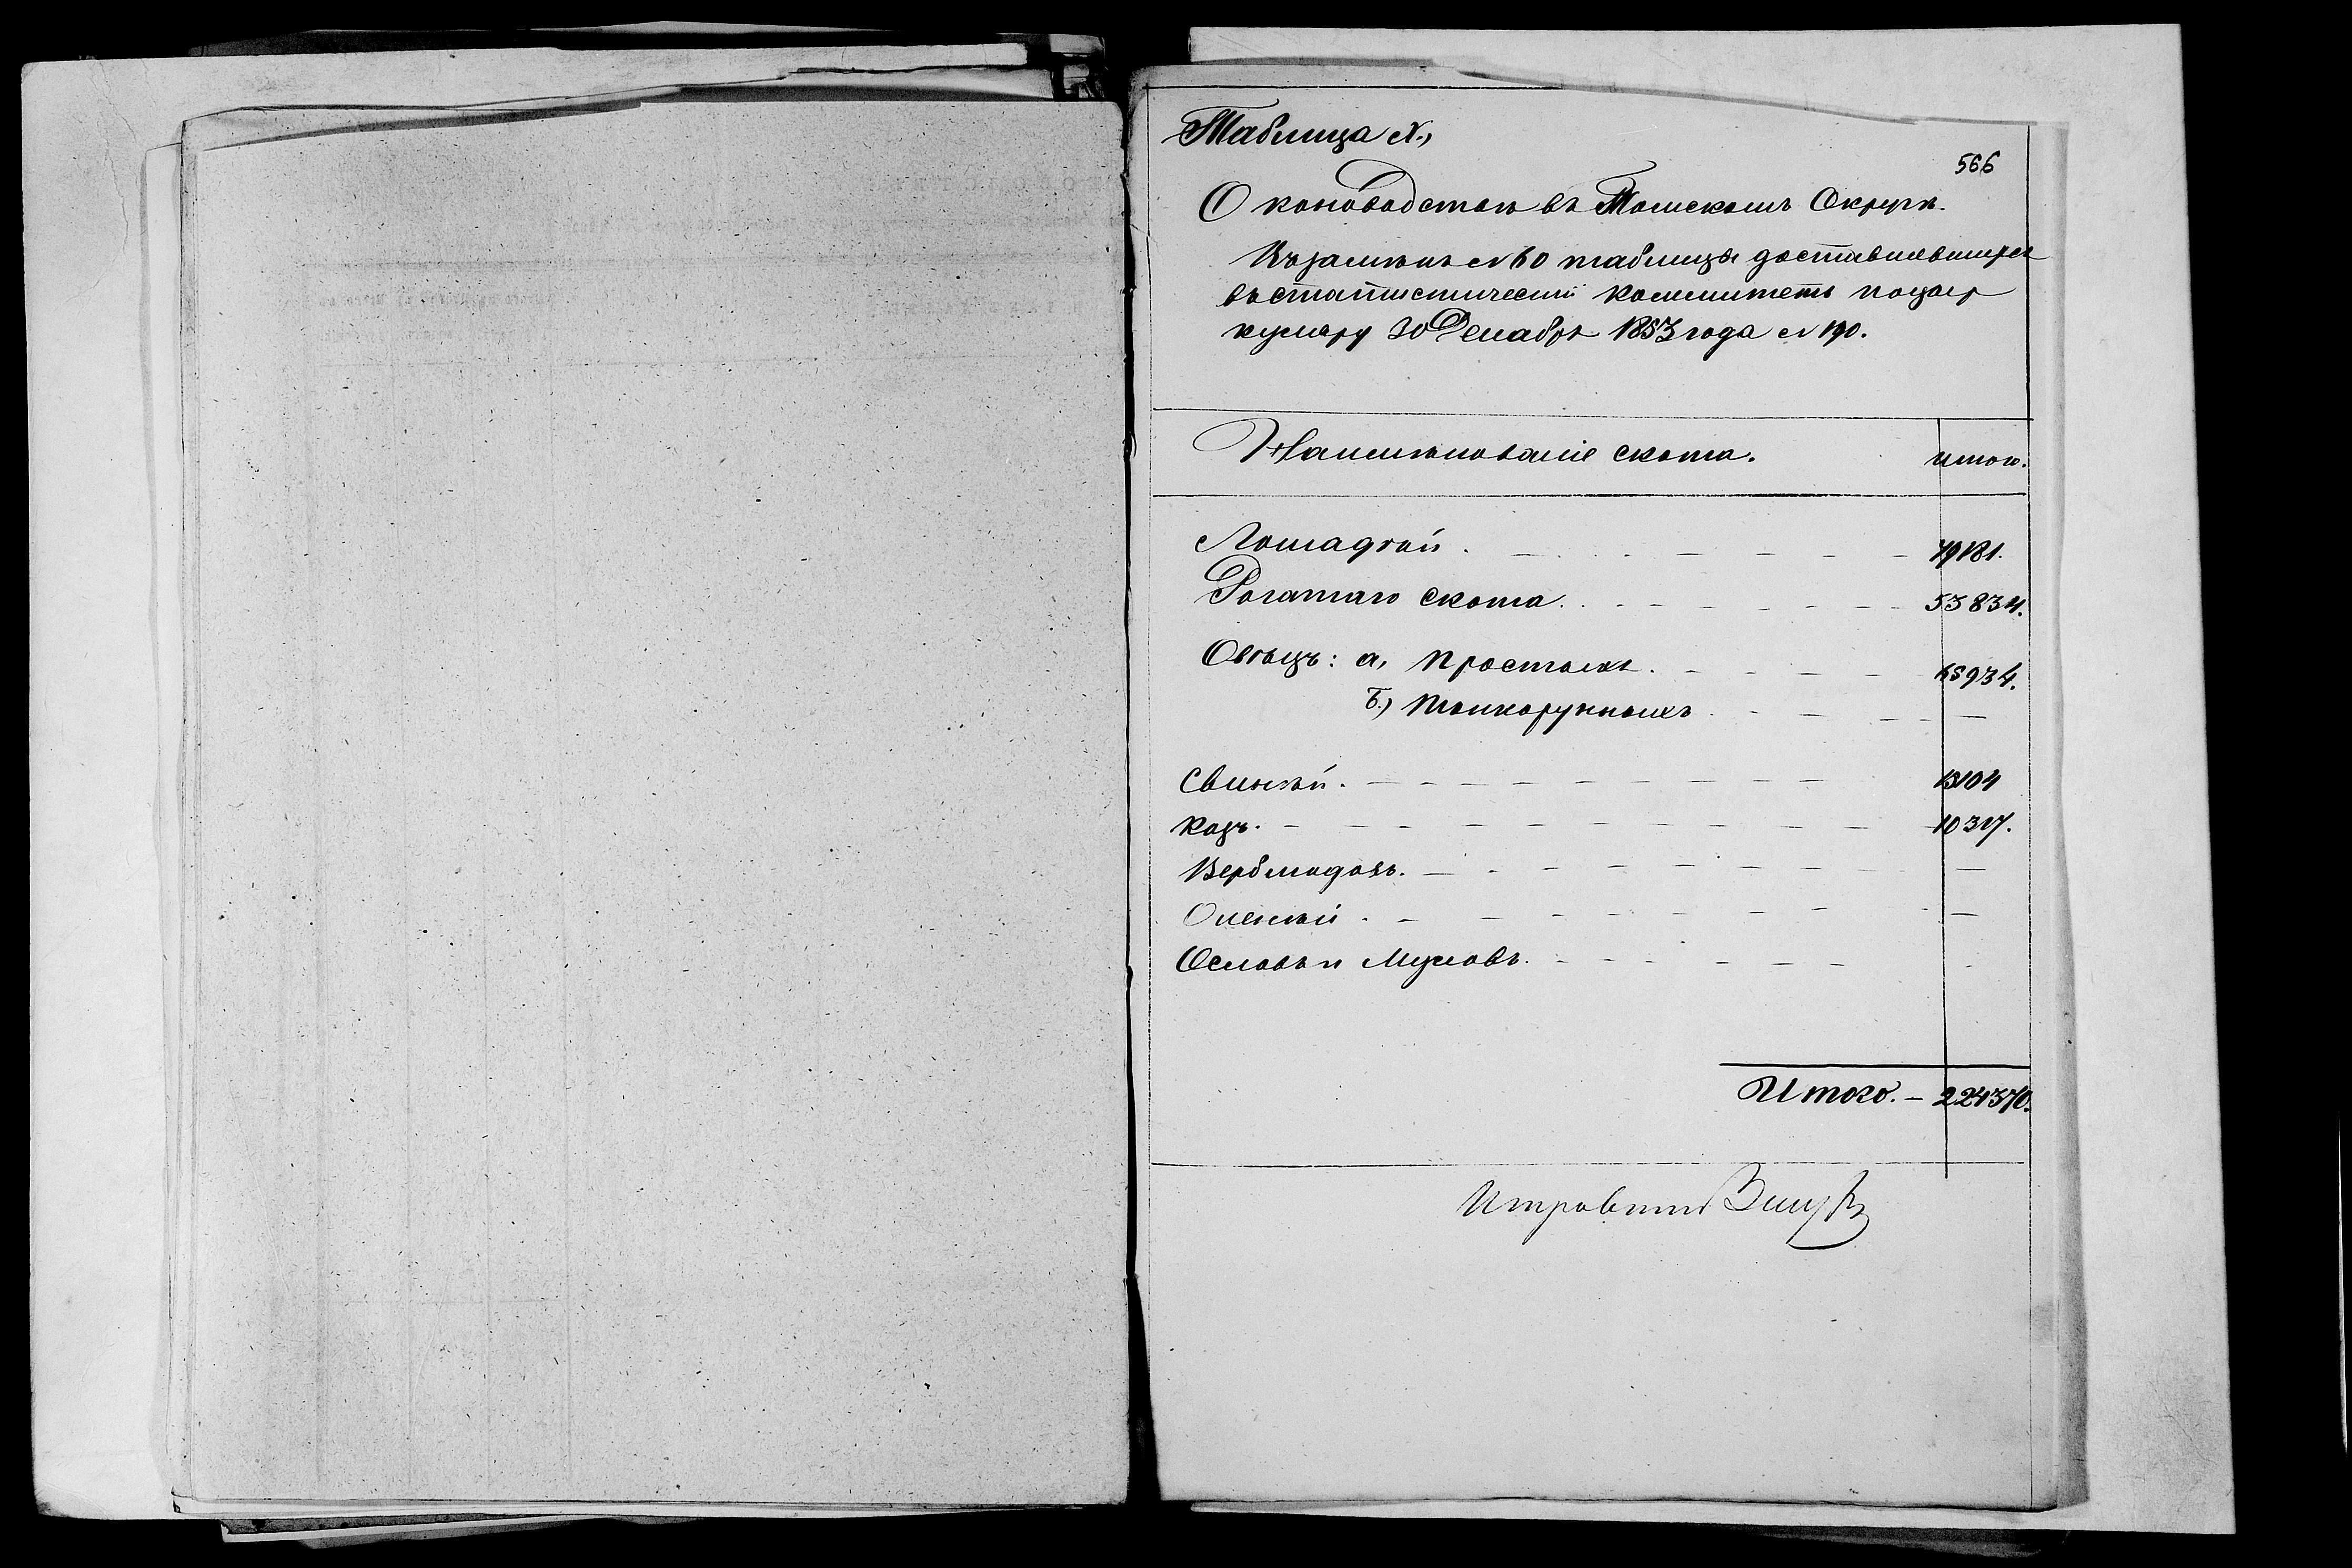 Таблица №,
566
О коноводствѣ въ Томскомъ Округѣ.
Взамѣнъ № 60 таблицы доставлявшуюся
въ статистический коммитетъ по цыр
куляру 30 Декабря 1853 года № 190.
Наимѣнованіе скота.
итого.
Лошадѣй. 79181.
Рогатаго скота. 53834.
Овѣцъ: а, простыхъ. 65934.
б,) тонкорунныхъ —
Свинѣй. 15104
Козъ. 10317.
Верблюдовъ. —
Оленѣй. —
Ословъ и Муловъ.
Итого. — 224370.